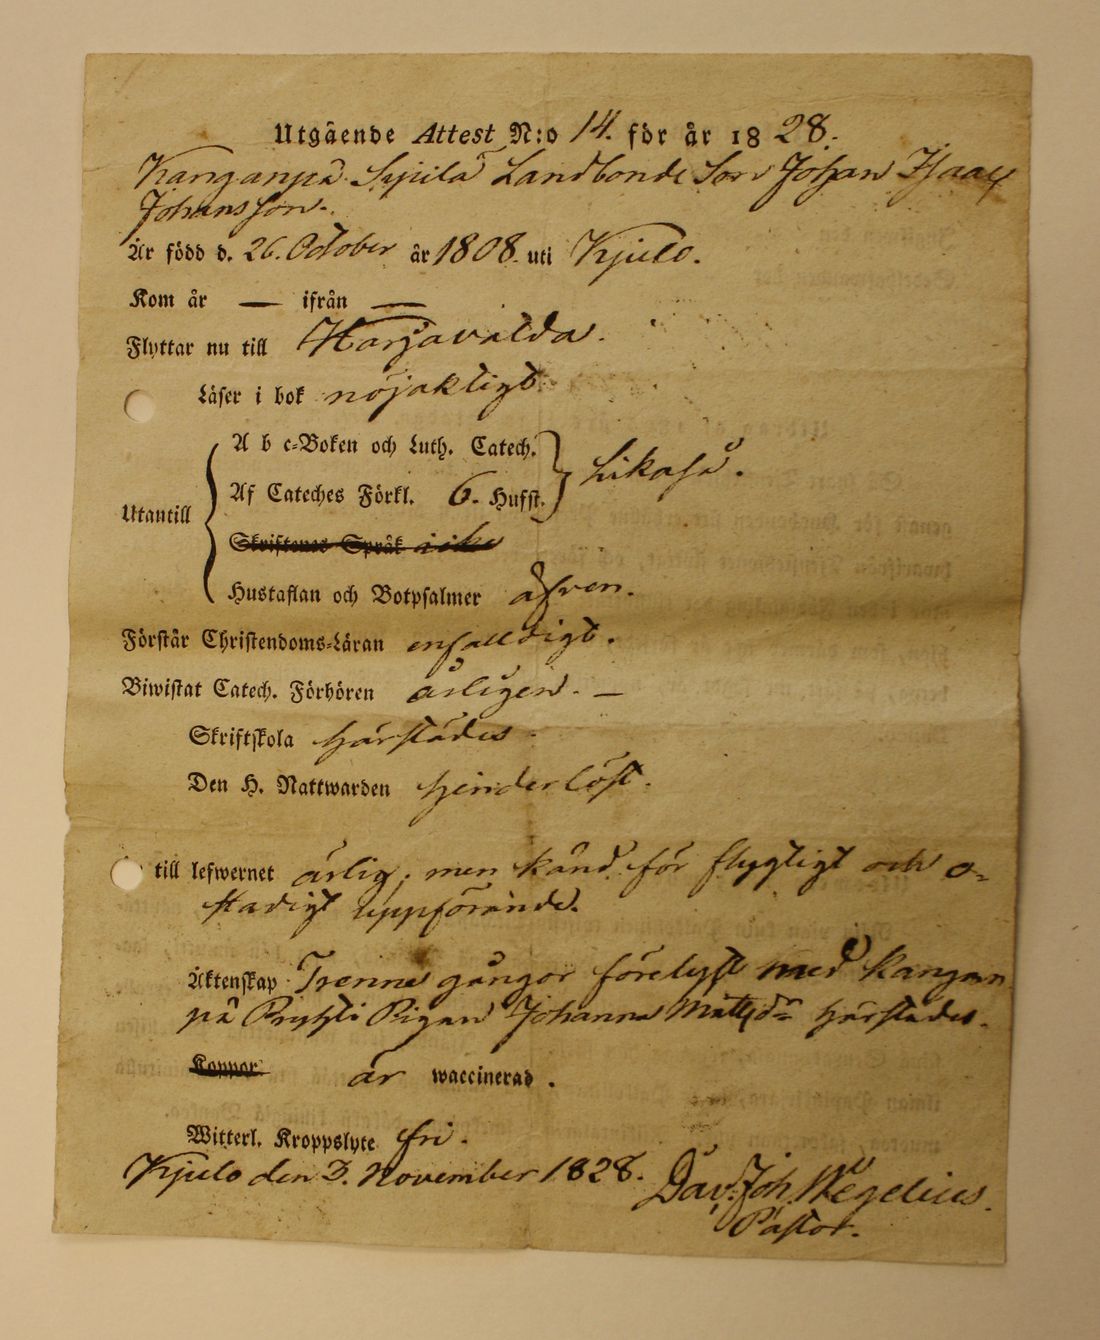 Utgående Attest N:o 14. för år 1828.
Kanganpä Sipilä Landbonde Son Johan Isaac
Johansson.
Är född d. 26. October år 1808. uti Kjulo.
Kom år — ifrån —
Flyttar nu till Harjavalda.
Läser i bok nöjaktigt
A b c-Boken och Luth. Catech.
Af Cateches Förkl. 6. Hufst. } likaså.
Utantill {
Skriftenes Språk icke
Hustaflan och Botpsalmer äfven.
Förstår Christendoms-Läran enfaldigt.
Biwistat Catech. Förhören årligen. —
Skriftskola härstädes
Den H. Nattwarden hinderlöst.
till lefwernet ärlig, men känd för flygtigt och o-
stadigt uppförande.
Äktenskap Trenne gångor förelyst med Kangan
pä Pigan Johanna Mattsdr härstädes.
Koppor är waccinerad.
Witterl. Kroppslyte fri.
Kjulo den 3. November 1828. Dav. Joh. Wegelius.
Pastor.